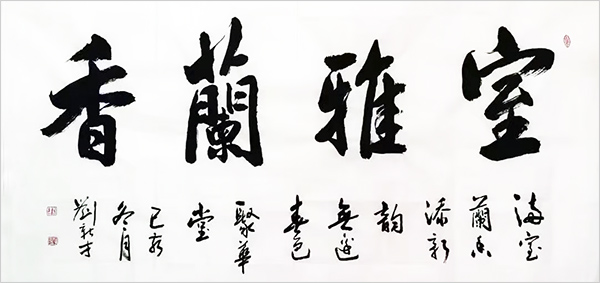 室雅蘭香
满室
蘭香
添新
韵
無邊
春色
聚華
堂
己亥
冬月
劉才